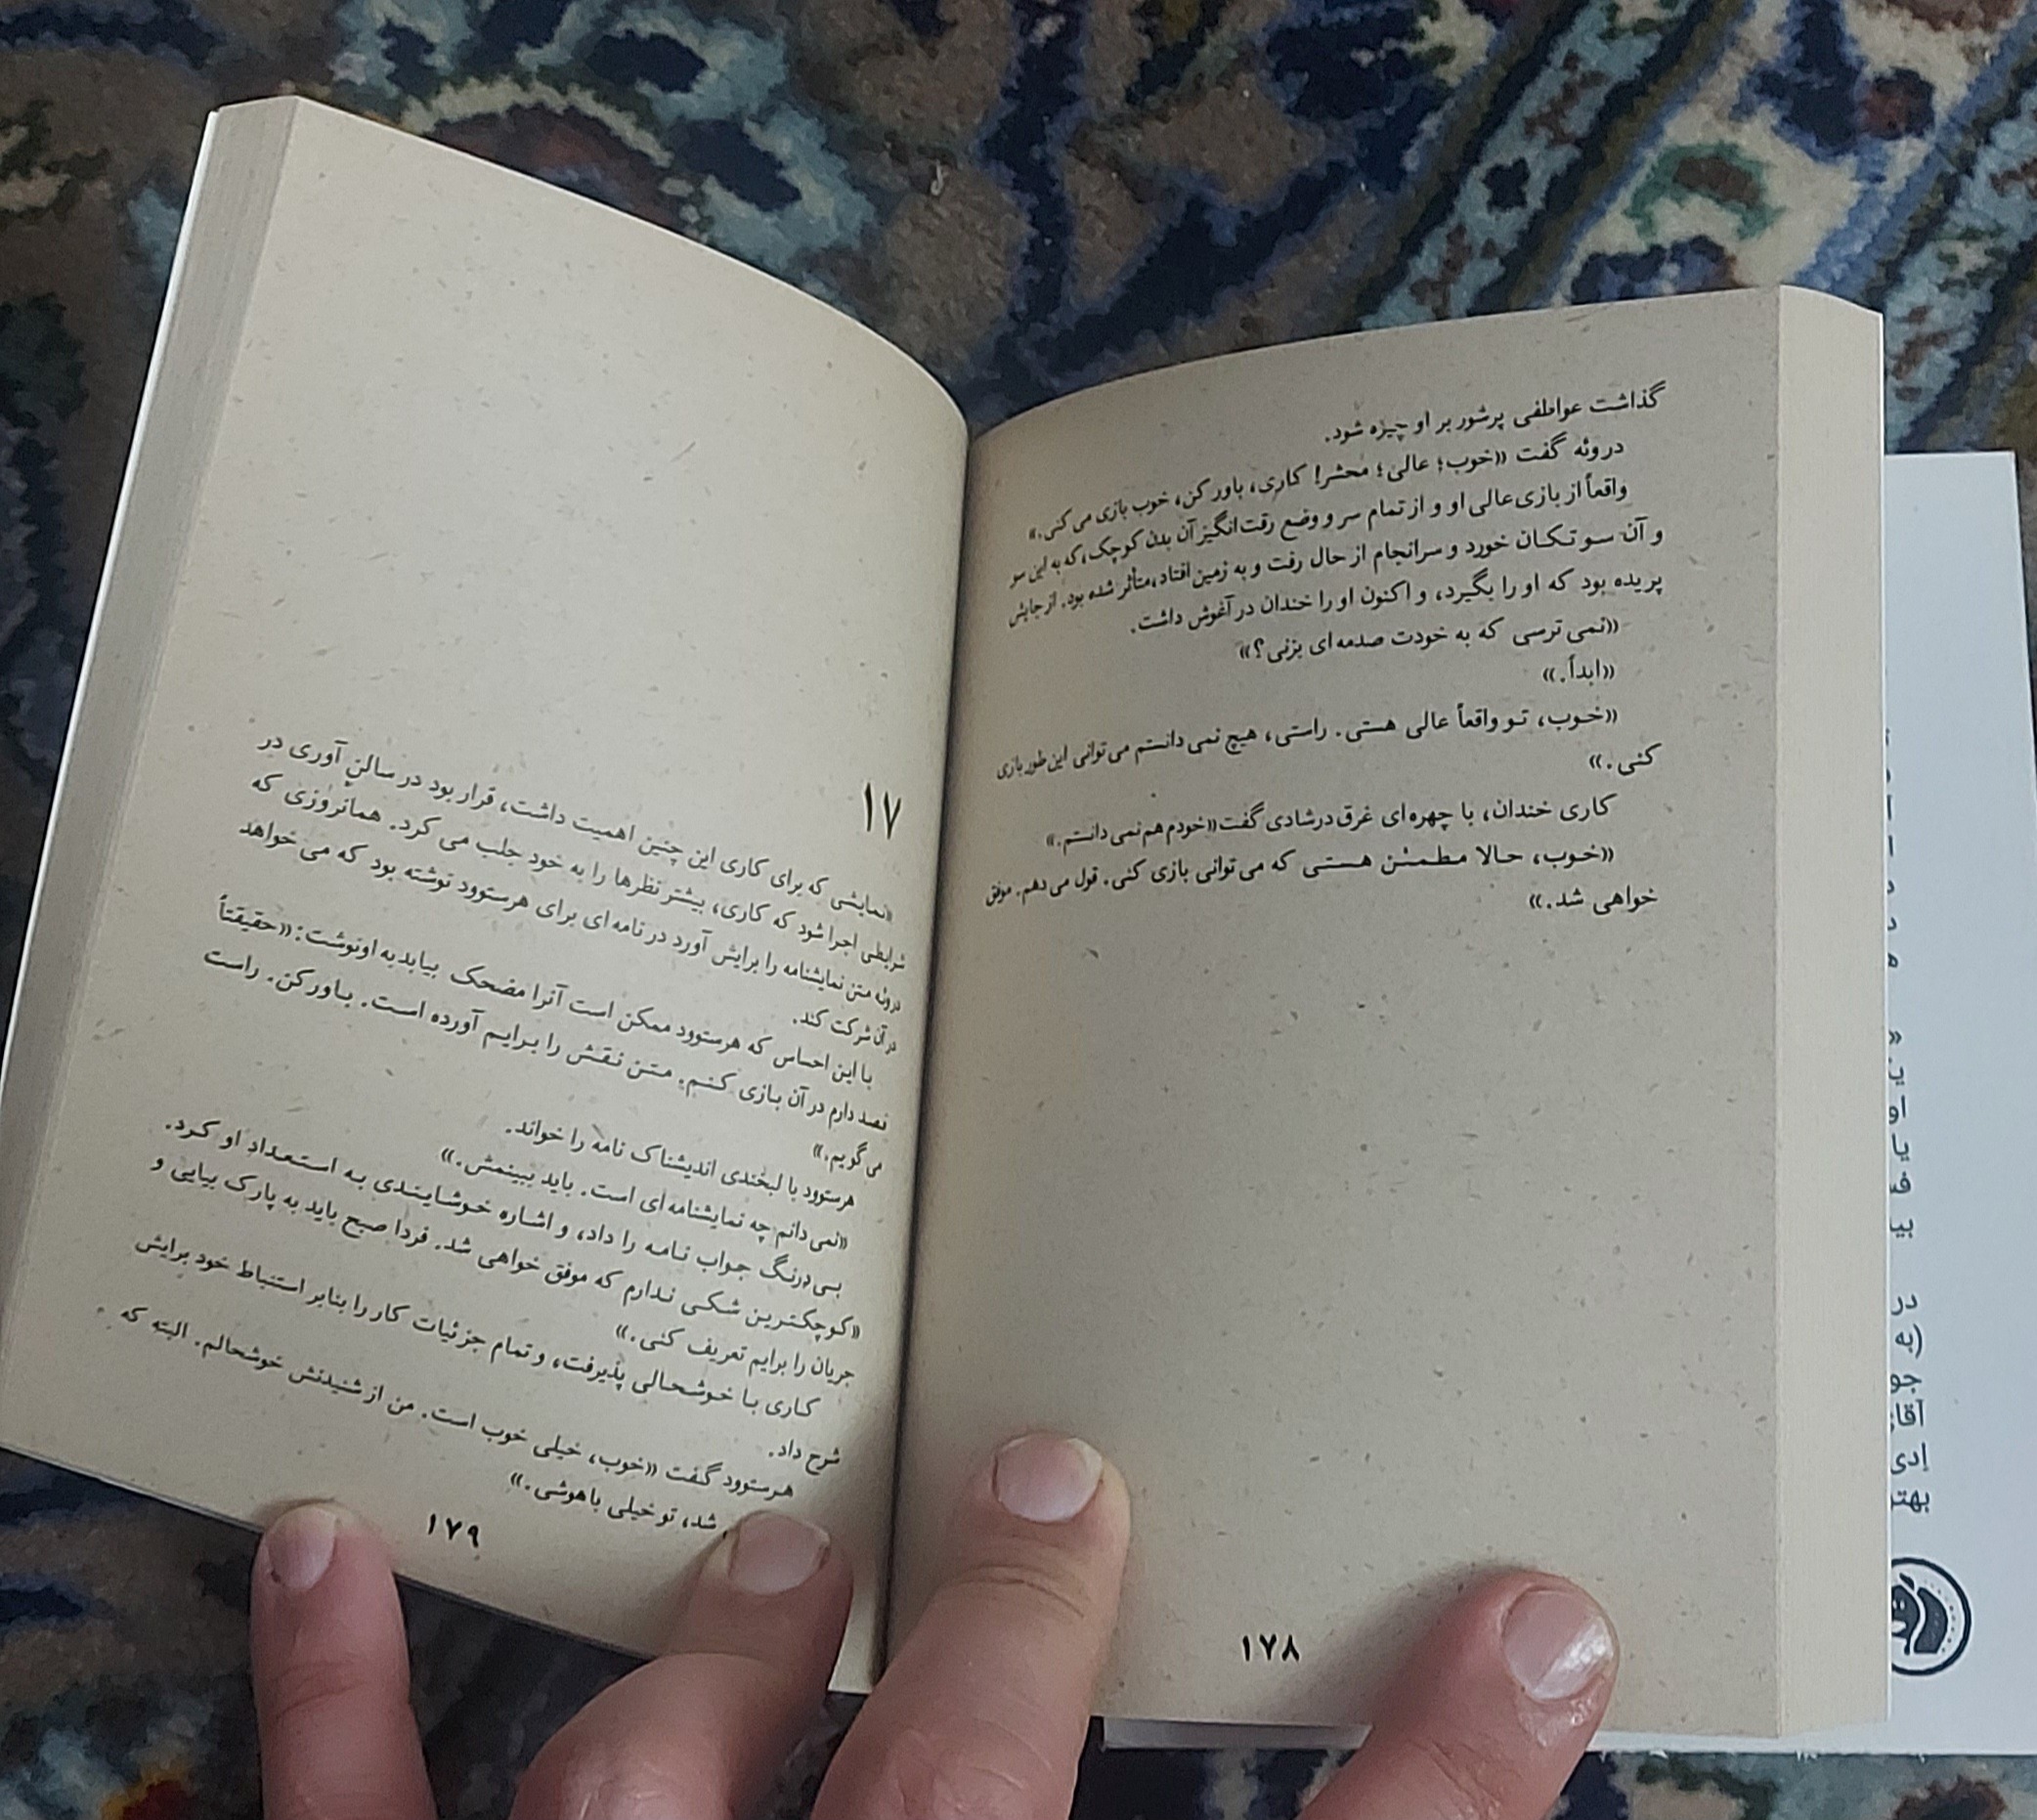 گذاشت عواطفی پرشور بر او چیزه شود.
دروئه گفت «خوب؛ عالی؛ محشر! کاری، باور کن، خوب بازی می کنی.»
واقعاً از بازی عالی او و از تمام سر و وضع رقت انگیز آن بدن کوچک، که به این سو
و آن سو تکان خورد و سرانجام از حال رفت و به زمین افتاد، متأثر شده بود. از جایش
پریده بود که او را بگیرد، و اکنون او را خندان در آغوش داشت.
«نمی ترسی که به خودت صدمه ای بزنی؟»
«ابداً.»
«خوب، تو واقعاً عالی هستی. راستی، هیچ نمی دانستم می توانی این طور بازی
کنی.»
کاری خندان، با چهره ای غرق در شادی گفت «خودم هم نمی دانستم.»
«خوب، حالا مطمئن هستی که می توانی بازی کنی. قول می دهم. موفق
خواهی شد.»
۱۷۸
۱۷
«نمایشی که برای کاری این چنین اهمیت داشت، قرار بود در سالنِ آوری در
شرایطی اجرا شود که کاری، بیشتر نظرها را به خود جلب می کرد. همانروزی که
دروئه متن نمایشنامه را برایش آورد در نامه ای برای هرستوود نوشته بود که می خواهد
در آن شرکت کند.
با این احساس که هرستوود ممکن است آنرا مضحک بیابد به او نوشت: «حقیقتاً
قصد دارم در آن بازی کنم. متن نقش را برایم آورده است. باور کن. راست
می گویم.»
هرستوود با لبخندی اندیشناک نامه را خواند.
«نمی دانم چه نمایشنامه ای است. باید ببینمش.»
بی درنگ جواب نامه را داد، و اشاره خوشایندی به استعدادِ او کرد.
«کوچکترین شکی ندارم که موفق خواهی شد. فردا صبح باید به پارک بیایی و
جریان را برایم تعریف کنی.»
کاری با خوشحالی پذیرفت، و تمام جزئیات کار را بنابر استنباط خود برایش
شرح داد.
هرستوود گفت «خوب، خیلی خوب است. من از شنیدنش خوشحالم. البته که
شد، تو خیلی باهوشی.»
۱۷۹
او
در
(به